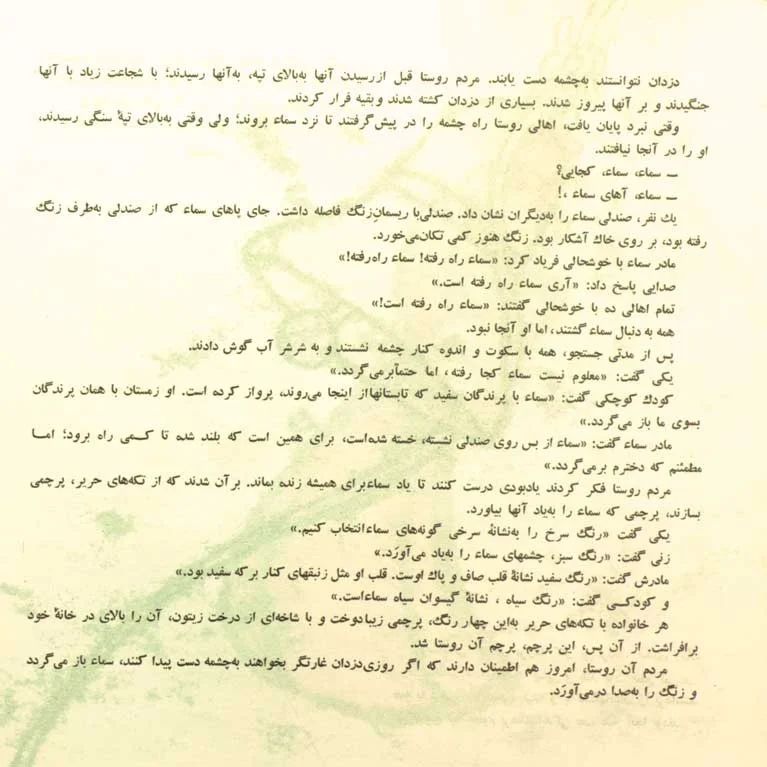 دزدان نتوانستند به‌چشمه دست یابند. مردم روستا قبل از رسیدن آنها به‌بالای تپه، به‌آنها رسیدند؛ با شجاعت زیاد با آنها
جنگیدند و بر آنها پیروز شدند. بسیاری از دزدان کشته شدند و بقیه فرار کردند.
وقتی نبرد پایان یافت، اهالی روستا راه چشمه را در پیش‌گرفتند تا نزد سماء بروند؛ ولی وقتی به‌بالای تپهٔ سنگی رسیدند،
او را در آنجا نیافتند.
ـ سماء، سماء، کجایی؟
ـ سماء، آهای سماء ،!
یك نفر، صندلی سماء را به‌دیگران نشان داد. صندلی‌با ریسمانِ‌زنگ فاصله داشت. جای پاهای سماء که از صندلی به‌طرف زنگ
رفته بود، بر روی خاك آشکار بود. زنگ هنوز کمی تکان‌می‌خورد.
مادر سماء با خوشحالی فریاد کرد: «سماء راه رفته! سماء راه‌رفته!»
صدایی پاسخ داد: «آری سماء راه رفته است.»
تمام اهالی ده با خوشحالی گفتند: «سماء راه رفته است!»
همه به دنبال سماء گشتند، اما او آنجا نبود.
پس از مدتی جستجو، همه با سکوت و اندوه کنار چشمه نشستند و به شرشر آب گوش دادند.
یکی گفت: «معلوم نیست سماء کجا رفته، اما حتمأبرمی‌گردد.»
کودك کوچکی گفت: «سماء با پرندگان سفید که تابستانهااز اینجا می‌روند، پرواز کرده است. او زمستان با همان پرندگان
بسوی ما باز می‌گردد.»
مادر سماء گفت: «سماء از بس روی صندلی نشسته، خسته شده‌است، برای همین است که بلند شده تا کـمی راه برود؛ امـا
مطمئنم که دخترم برمی‌گردد.»
مردم روستا فکر کردند یادبودی درست کنند تا یاد سماءبرای همیشه زنده بماند. برآن شدند که از تکه‌های حریر، پرچمی
بسازند، پرچمی که سماء را به‌یاد آنها بیاورد.
یکی گفت «رنگ سرخ را به‌نشانهٔ سرخی گونه‌های سماءانتخاب کنیم.»
زنی گفت: «رنگ سبز، چشمهای سماء را به‌یاد می‌آورَد.»
مادرش گفت: «رنگ سفید نشانهٔ قلب صاف و پاك اوست. قلب او مثل زنبقهای کنار برکه سفید بود.»
و کودکـی گفت: «رنگ سیاه ، نشانهٔ گیسوان سیاه سماءاست.»
هر خانواده با تکه‌های حریر به‌این چهار رنگ، پرچمی زیبادوخت و با شاخه‌ای از درخت زیتون، آن را بالای در خانهٔ خود
برافراشت. از آن پس، این پرچم، پرچم آن روستا شد.
مردم آن روستا، امروز هم اطمینان دارند که اگر روزی‌دزدان غارتگر بخواهند به‌چشمه دست پیدا کنند، سماء باز می‌گردد
و زنگ را به‌صدا درمی‌آورَد.